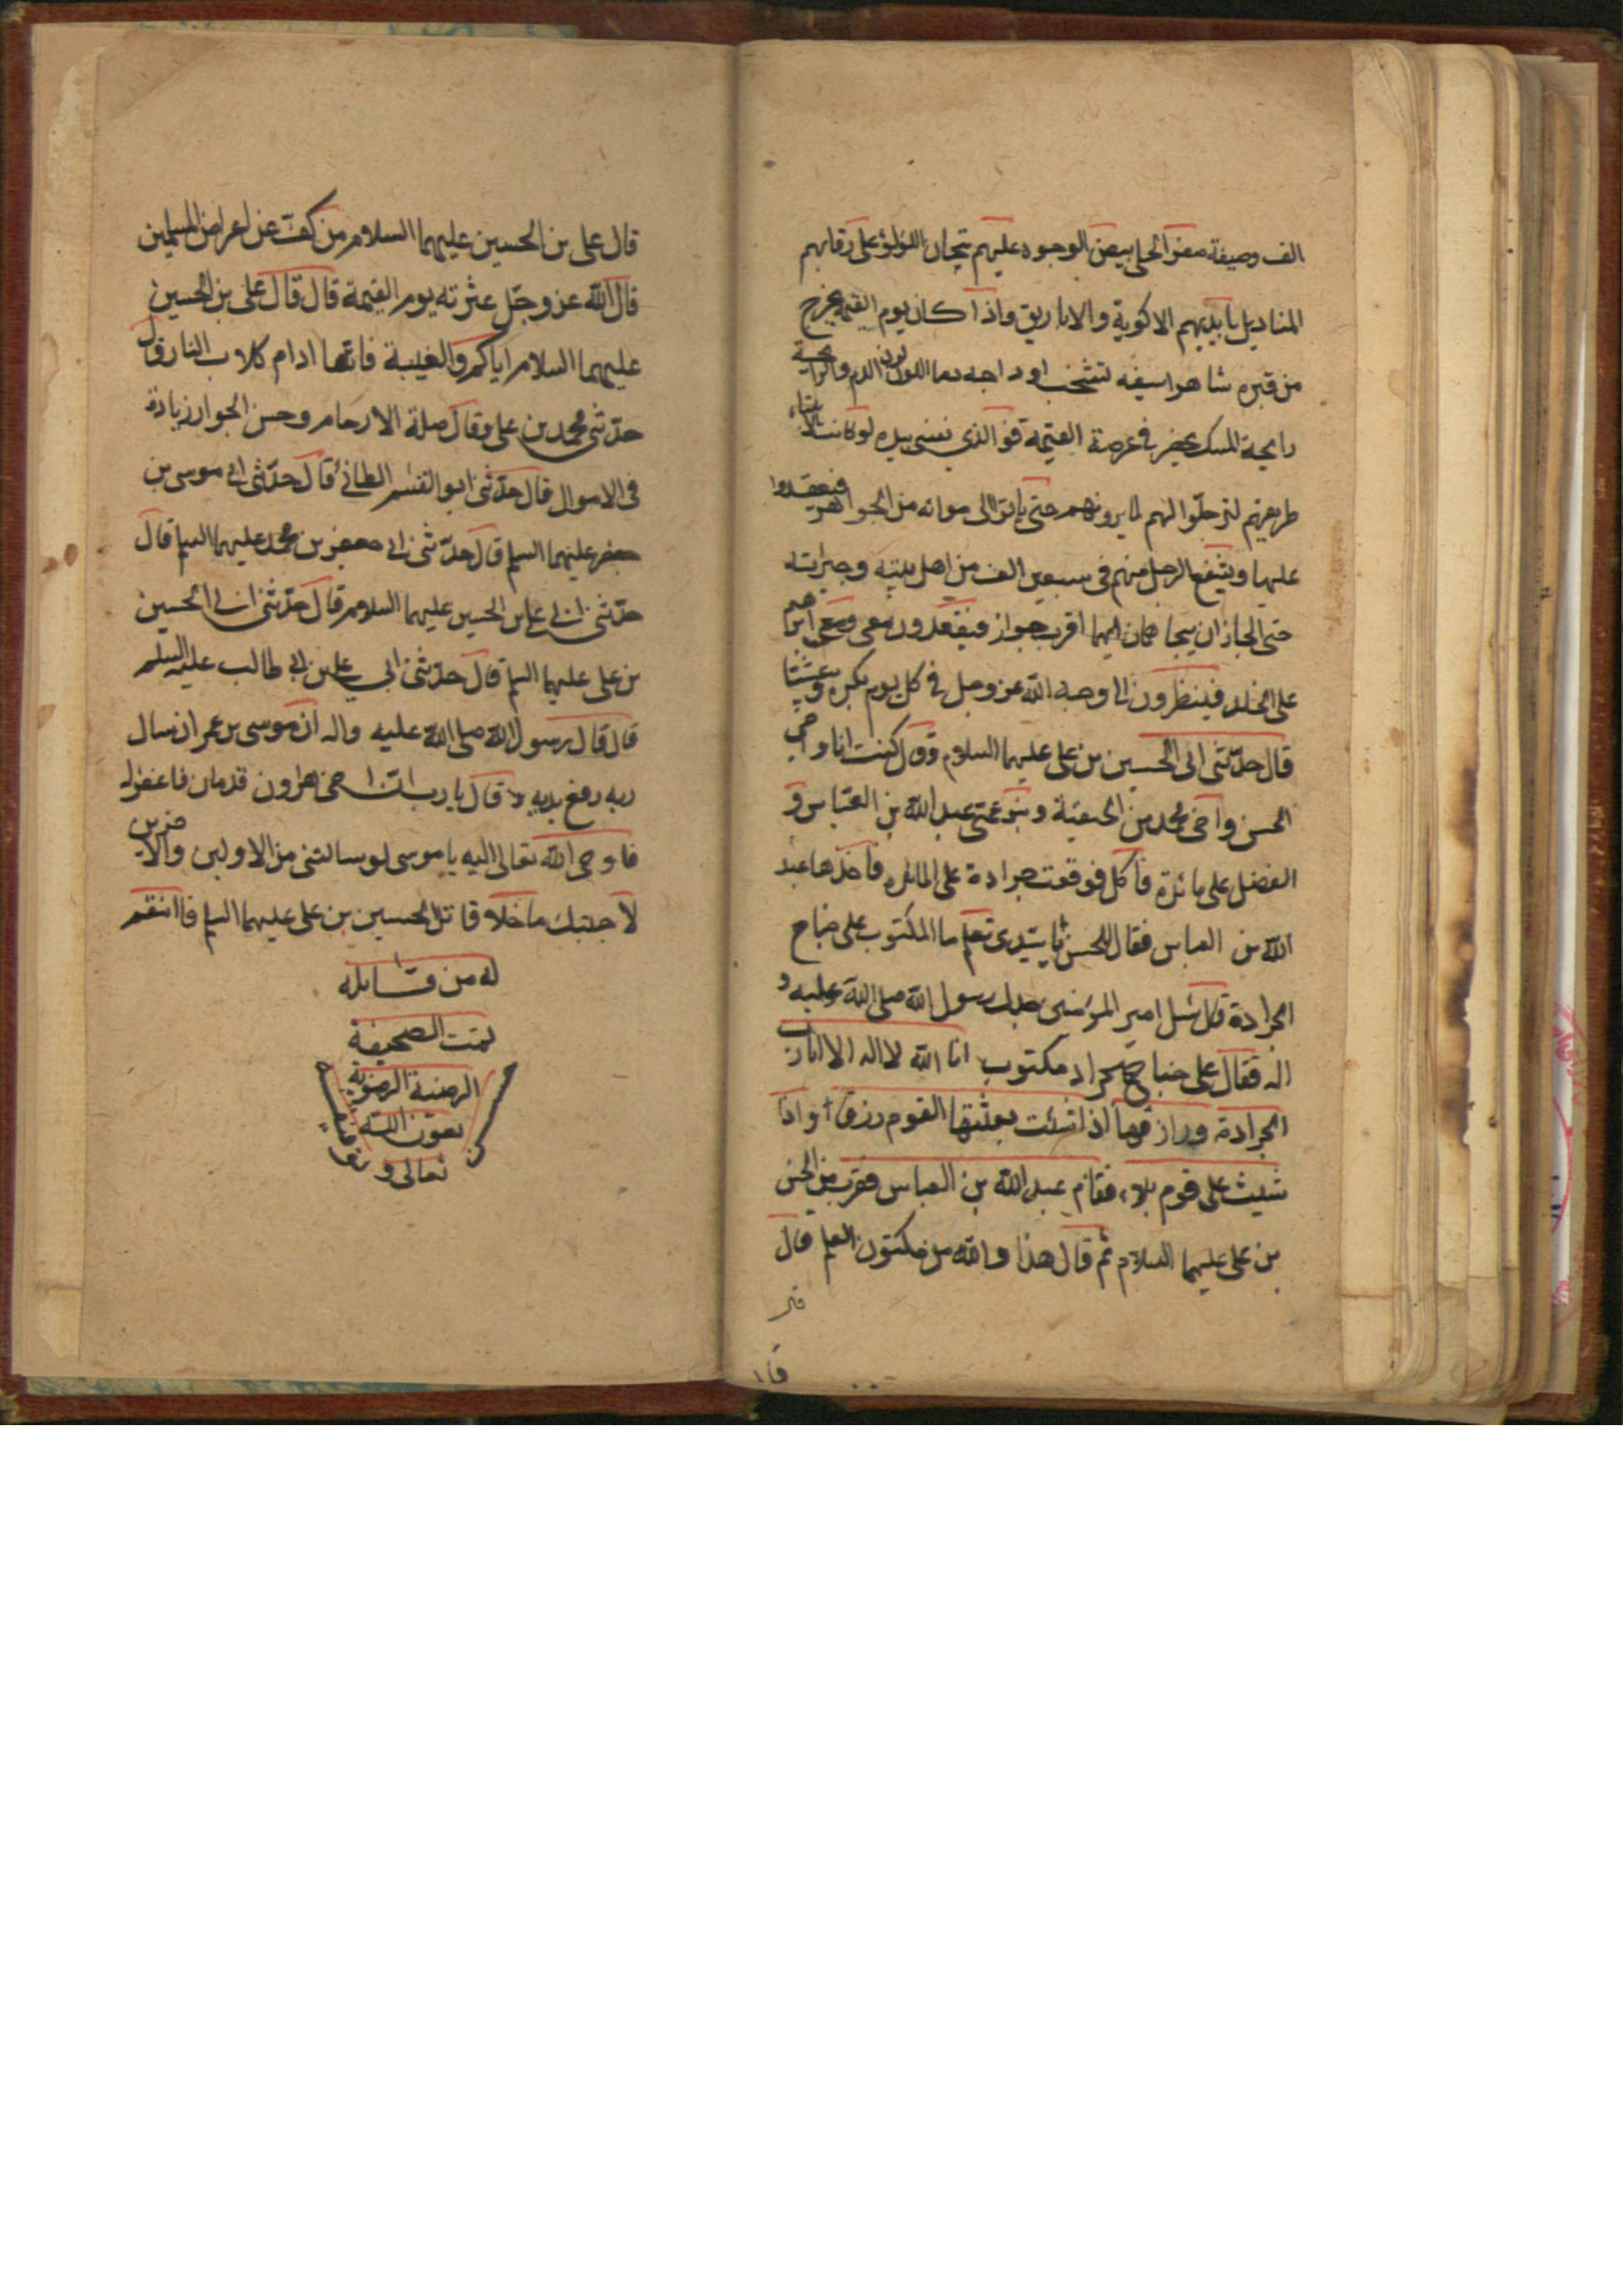 الف وصيفة صفر الحلى بيض الوجوه عليهم تيجان اللؤلؤ على رقابهم
المناديل بايديهم الاكوبة والاباريق واذا كان يوم القيمة يخرج
من قبره شاهرا سيفه تشخب اوداجه دما اللون لون الدم والرائحة
رايحة المسك يحضر فى عرصة القيمة فو الذي نفسي بيده لو كانت الانبياء
طريقهم لترجلوا لهم لما يرونهم حتى ياتوا الى موائد من الجواهر فيقعدوا
عليها ويشفع الرجل منهم فى سبعين الف من اهل بيته وجيرانه
حتى الجاران يتخاصمان ايهما اقرب جوار فيقعدون معى ومع ابراهيم
على الخلد فينظرون الى وجه الله عز وجل فى كل يوم بكرة وعشيا
قال حدثنى ابى الحسين بن على عليهما السلام وق ل كنت انا واخى
الحسن واخى محمد بن الحنفية وبنو عمى عبد الله بن العباس و
الفضل على مائدة فأكل فوقعت جرادة على المائدة فاخذها عبد
الله بن العباس فقال للحسن يا سيدى تعلم ما المكتوب على جناح
الجرادة قال سئل امير المؤمنين جدك رسول الله صلى الله عليه و
اله فقال على جناح الجراد مكتوب انا الله لا اله الا انا رب
الجرادة ورازقها اذا شئت بعثتها القوم رزقا واذا
شيت على قوم بلاء فقام عبد الله بن العباس فقرب من الحسن
بن على عليهما السلام ثم قال هذا والله من مكنون العلم قال
قال على بن الحسين عليهما السلام من كف عن اعراض المسلمين
قال الله عز وجل عثرته يوم القيمة قال قال على بن الحسين
عليهما السلام اياكم والغيبة فانها ادام كلاب النار وقال
حدثنى محمد بن على وقال صلة الارحام وحسن الجوار زيادة
فى الاموال قال حدثنى ابو القسم الطائى قال حدثنى ابى موسى بن
جعفر عليهما السلم قال حدثنى ابى جعفر بن محمد عليهما السلم قال
حدثنى ابى على بن الحسين عليهما السلام قال حدثنى ابى الحسين
بن على عليهما السلم قال حدثنى ابى على بن ابى طالب عليه السلم
قال قال رسول الله صلى الله عليه واله ان موسى بن عمران سال
ربه رفع يديه و قال يا رب ان اخى هرون قد مات فاغفر له
فاوحى الله تعالى اليه يا موسى لو سالتنى من الاولين والاخرين
لاجبتك ما خلا قاتل الحسين بن على عليهما السلم فا انتقم
له من قاتله
تمت الصحيفة
الرضية الرضوية
بعون الله
تعالى و